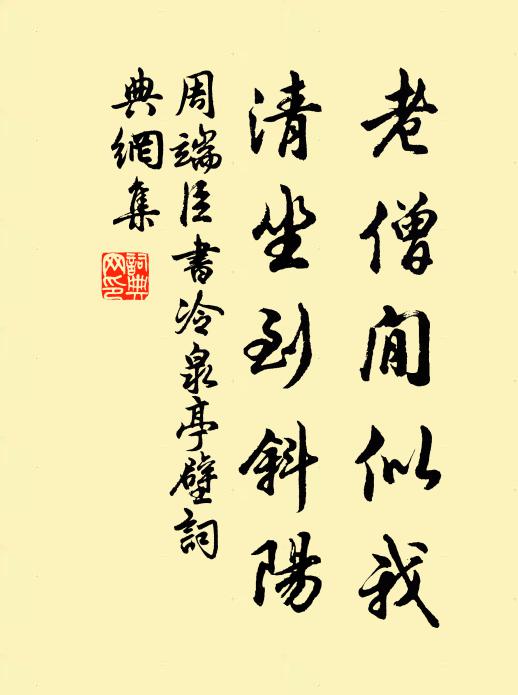 老僧閒似我
清坐到斜陽
周端臣書冷泉亭壁詞
典網集
詞典
网印